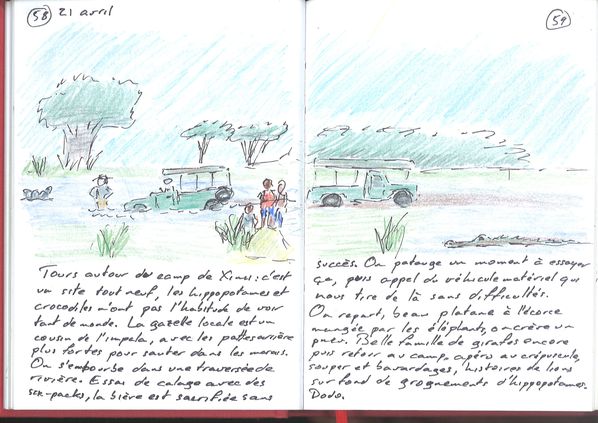 58 21 avril
Tours autour du camp de Xinis: c'est
un site tout neuf, les hippopotames et
crocodiles n'ont pas l'habitude de voir
tant de monde. La gazelle locale est un
cousin de l'impala, avec les pattes arrière
plus fortes pour sauter dans les marais.
On s'embourbe dans une traversée de
rivière. Essai de calage avec des
six-packs, la bière est sacrifiée sans
59
succès. On patauge un moment à essayer
ça, puis appel du véhicule matériel qui
nous tire de là sans difficultés.
On repart, beau platane à l'écorce
mangée par les éléphants, on crève un
pneu. Belle famille de girafes encore
puis retour au camp, apéro au crépuscule,
souper et bavardages, histoires de lions
sur fond de grognements d'hippopotames.
Dodo.